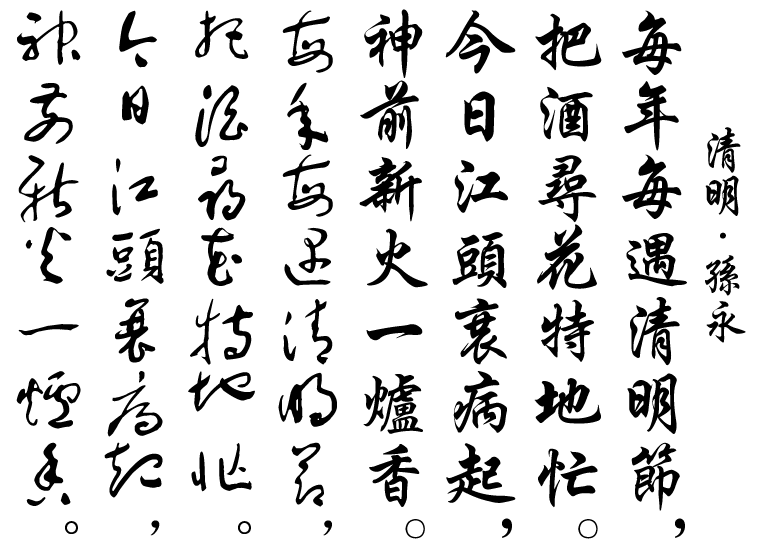 清明·孫永
每年每遇清明節，
把酒尋花特地忙。
今日江頭衰病起，
神前新火一爐香。
每年每遇清明節，
把酒尋花特地忙。
今日江頭衰病起，
神前新火一爐香。